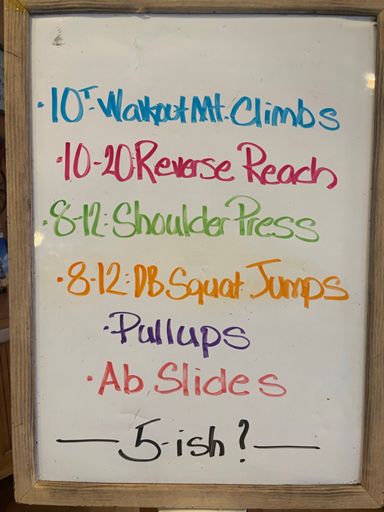 · 10T- Walkout Mt. Climbs
· 10-20: Reverse Reach
· 8-12: Shoulder Press
· 8-12: DB Squat Jumps
· Pullups
· Ab Slides
— 5-ish? —